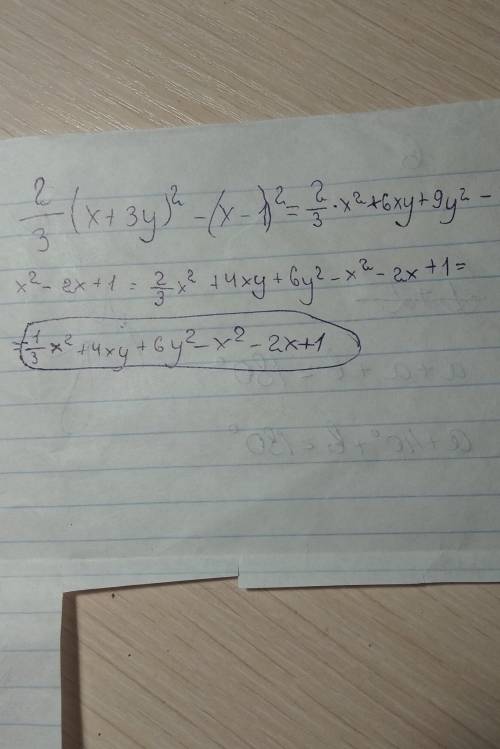 2/3 (x+3y)² -(x-1)² = 2/3 · x² + 6xy + 9y² -
x² - 2x + 1 = 2/3 x² + 4xy + 6y² - x² - 2x + 1 =
= -1/3 x² + 4xy + 6y² - x² - 2x + 1